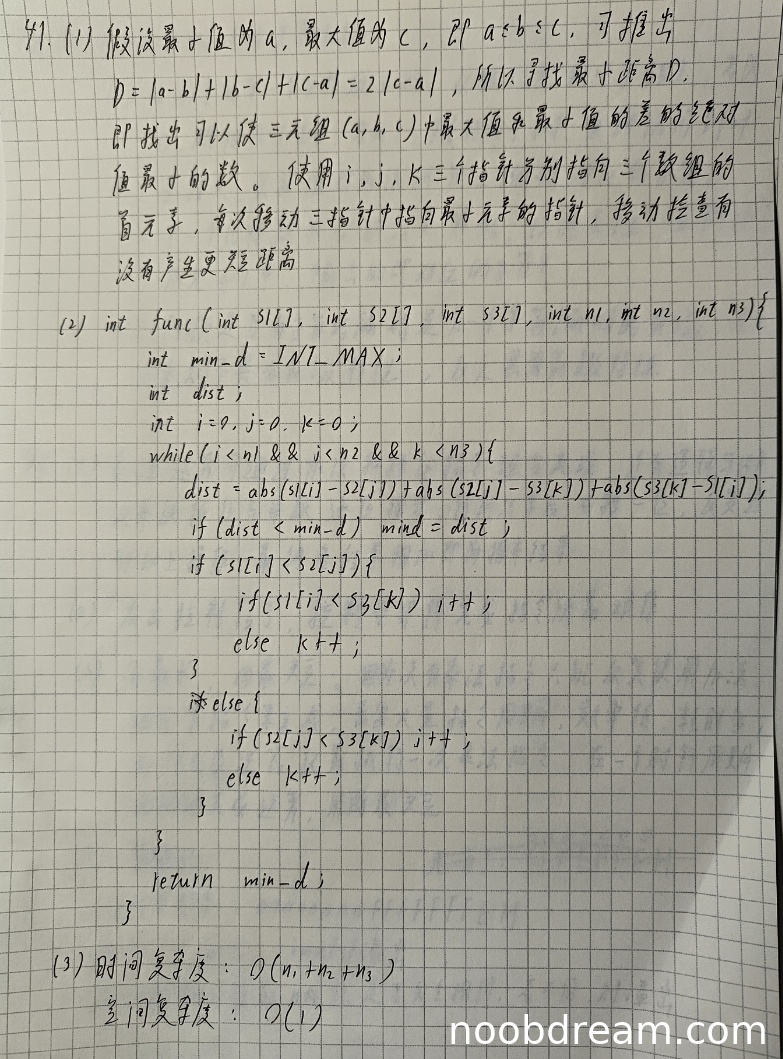 41. (1) 假设最小值为a, 最大值为c, 即 a≤b≤c, 可推出
D=|a-b|+|b-c|+|c-a|=2|c-a|, 所以寻找最小距离D,
即找出可以使三元组(a,b,c)中最大值和最小值的差的绝对
值最小的数。使用i, j, k三个指针分别指向三个数组的
首元素, 每次移动三指针中指向最小元素的指针, 移动检查有
没有产生更短距离
(2) int func(int S1[], int S2[], int S3[], int n1, int n2, int n3){
int min_d = INT_MAX;
int dist;
int i=0, j=0, k=0;
while(i<n1 && j<n2 && k<n3){
dist = abs(S1[i]-S2[j])+abs(S2[j]-S3[k])+abs(S3[k]-S1[i]);
if(dist < min_d) mind = dist;
if(S1[i]<S2[j]){
if(S1[i]<S3[k]) i++;
else k++;
}
else{
if(S2[j]<S3[k]) j++;
else k++;
}
}
return min_d;
}
(3) 时间复杂度: O(n1+n2+n3)
空间复杂度: O(1)
noobdream.com